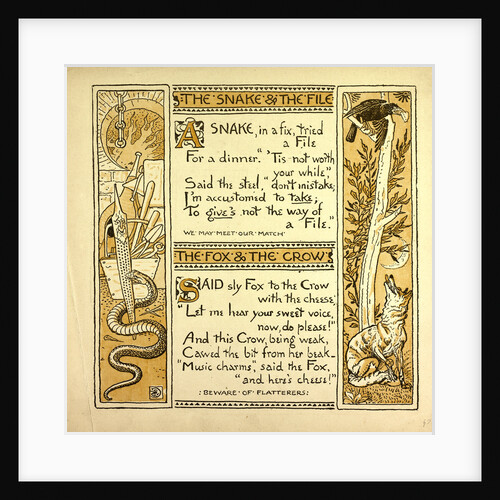 THE · SNAKE · & · THE · FILE
A SNAKE, in a fix, tried
a File
For a dinner. "'Tis not worth
your while,"
Said the steel, "don't mistake;
I'm accustomed to take;
To give's not the way of
a File."
WE · MAY · MEET · OUR · MATCH
THE · FOX · & · THE · CROW
SAID sly Fox to the Crow
with the cheese,
"Let me hear your sweet voice,
now, do please!"
And this Crow, being weak,
Cawed the bit from her beak.
"Music charms", said the Fox,
"and here's cheese!"
: BEWARE · OF · FLATTERERS :